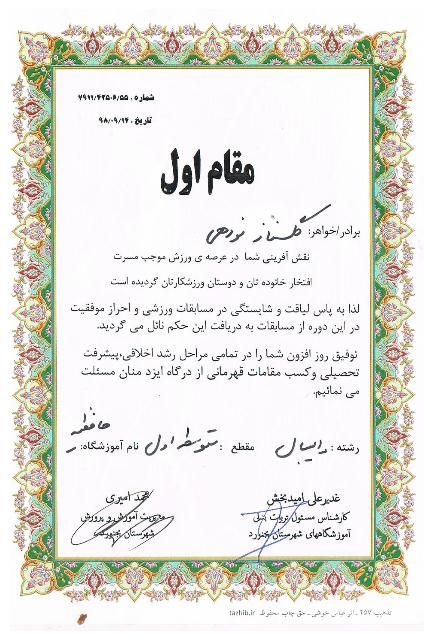 شماره : ۷۹۱۱/۴۲۵۰۶/۵۵
تاریخ : ۹۸/۰۹/۱۴
مقام اول
برادر/خواهر: گلناز نودهی
نقش آفرینی شما در عرصه ی ورزش موجب مسرت
افتخار خانوده تان و دوستان ورزشکارتان گردیده است
لذا به پاس لیاقت و شایستگی در مسابقات ورزشی و احراز موفقیت
در این دوره از مسابقات به دریافت این حکم نائل می گردید.
توفیق روز افزون شما را در تمامی مراحل رشد اخلاقی،پیشرفت
تحصیلی وکسب مقامات قهرمانی از درگاه ایزد منان مسئلت
می نمائیم.
رشته : والیبال مقطع : متوسطه اول نام آموزشگاه:
غدیرعلی امیدبخش
کارشناس مسئول تربیت بدنی
آموزشگاههای شهرستان بجنورد
محمد امیری
مدیریت آموزش و پرورش
شهرستان بجنورد
تذهیب ۲۵۷ ـ اثر عباس خوشی ـ حق چاپ محفوظ tazhib.ir